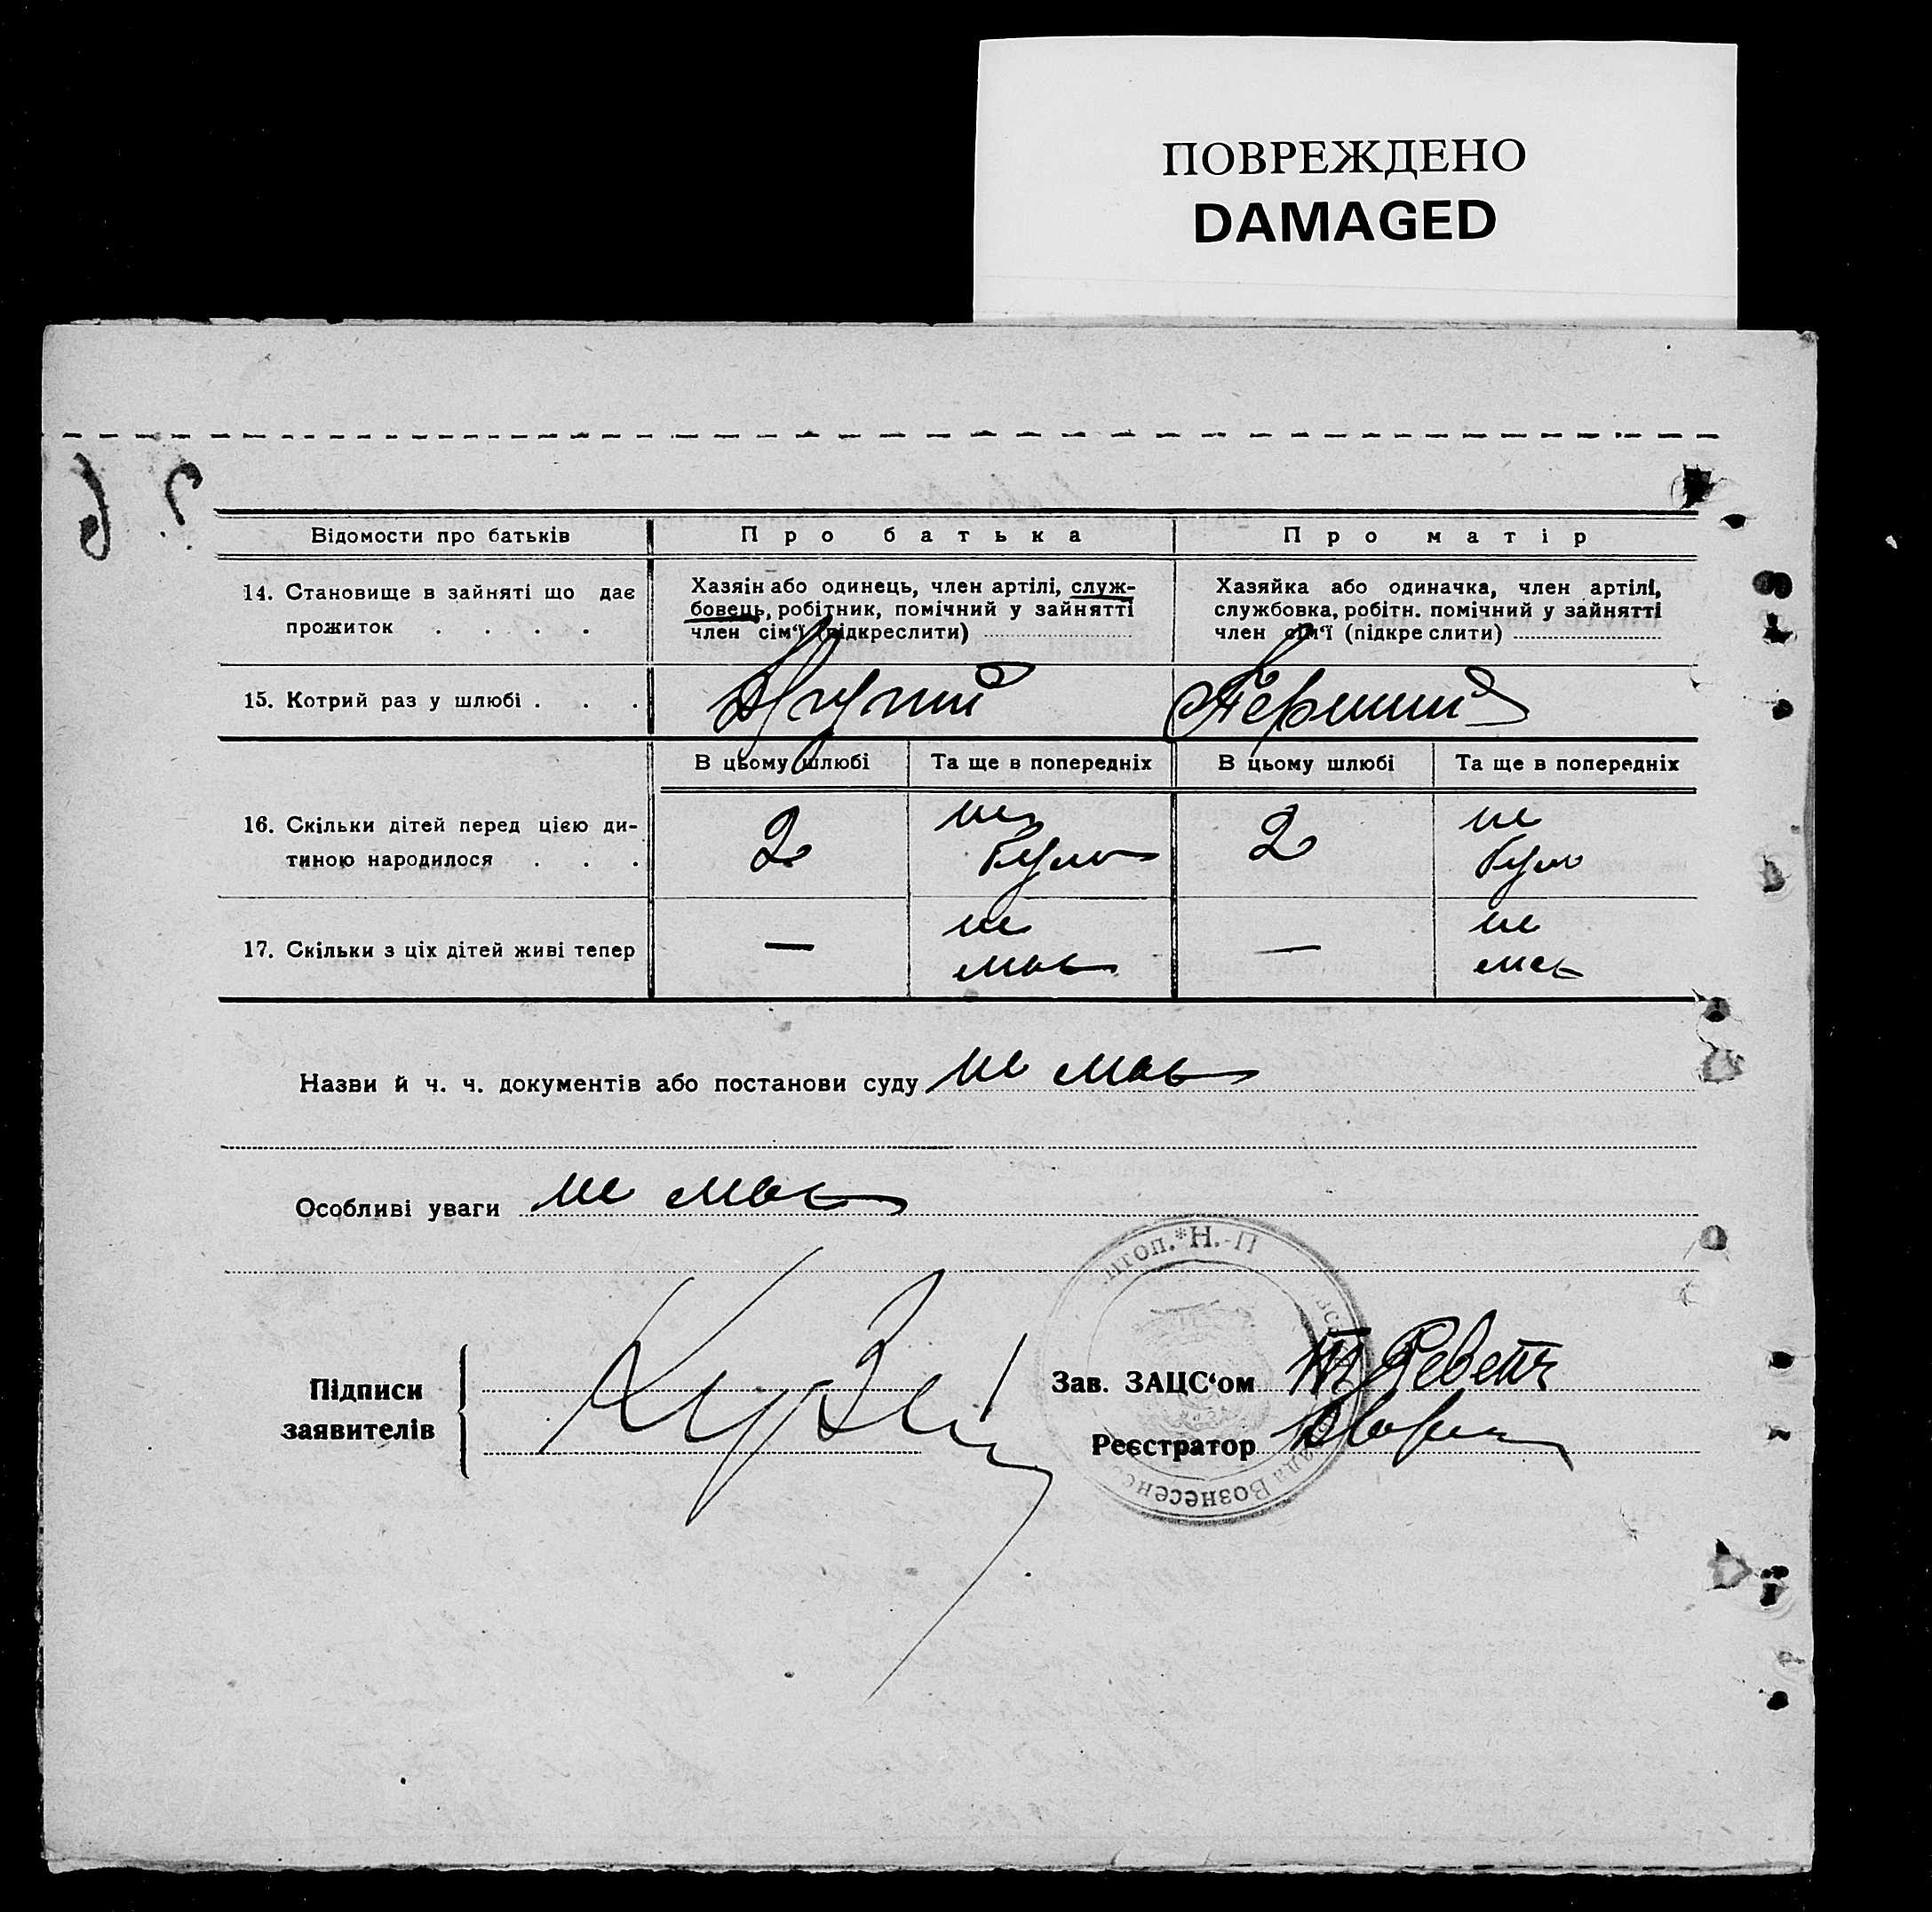 ПОВРЕЖДЕНО
DAMAGED
Відомости про батьків Про батька Про матір
14. Становище в зайняті що дає
прожиток . . . .
Хазяін або одинець, член артілі, служ-
бовець, робітник, помічний у зайнятті
член сім‘ї (підкреслити)
Хазяйка або одиначка, член артілі,
службовка, робітн. помічний у зайнятті
член сім‘ї (підкре слити)
15. Котрий раз у шлюбі . . . Другий Перший
В цьому шлюбі Та ще в попередніх В цьому шлюбі Та ще в попередніх
16. Скільки дітей перед цією ди-
тиною народилося . . .
2 не було 2 не було
17. Скільки з ціх дітей живі тепер — не має — не має
Назви й ч. ч. документів або постанови суду не має
Особливі уваги не має
Підписи
заявителів
Зав. ЗАЦС‘ом
Реєстратор
птоп. * Н.-П
ада Вознесенс